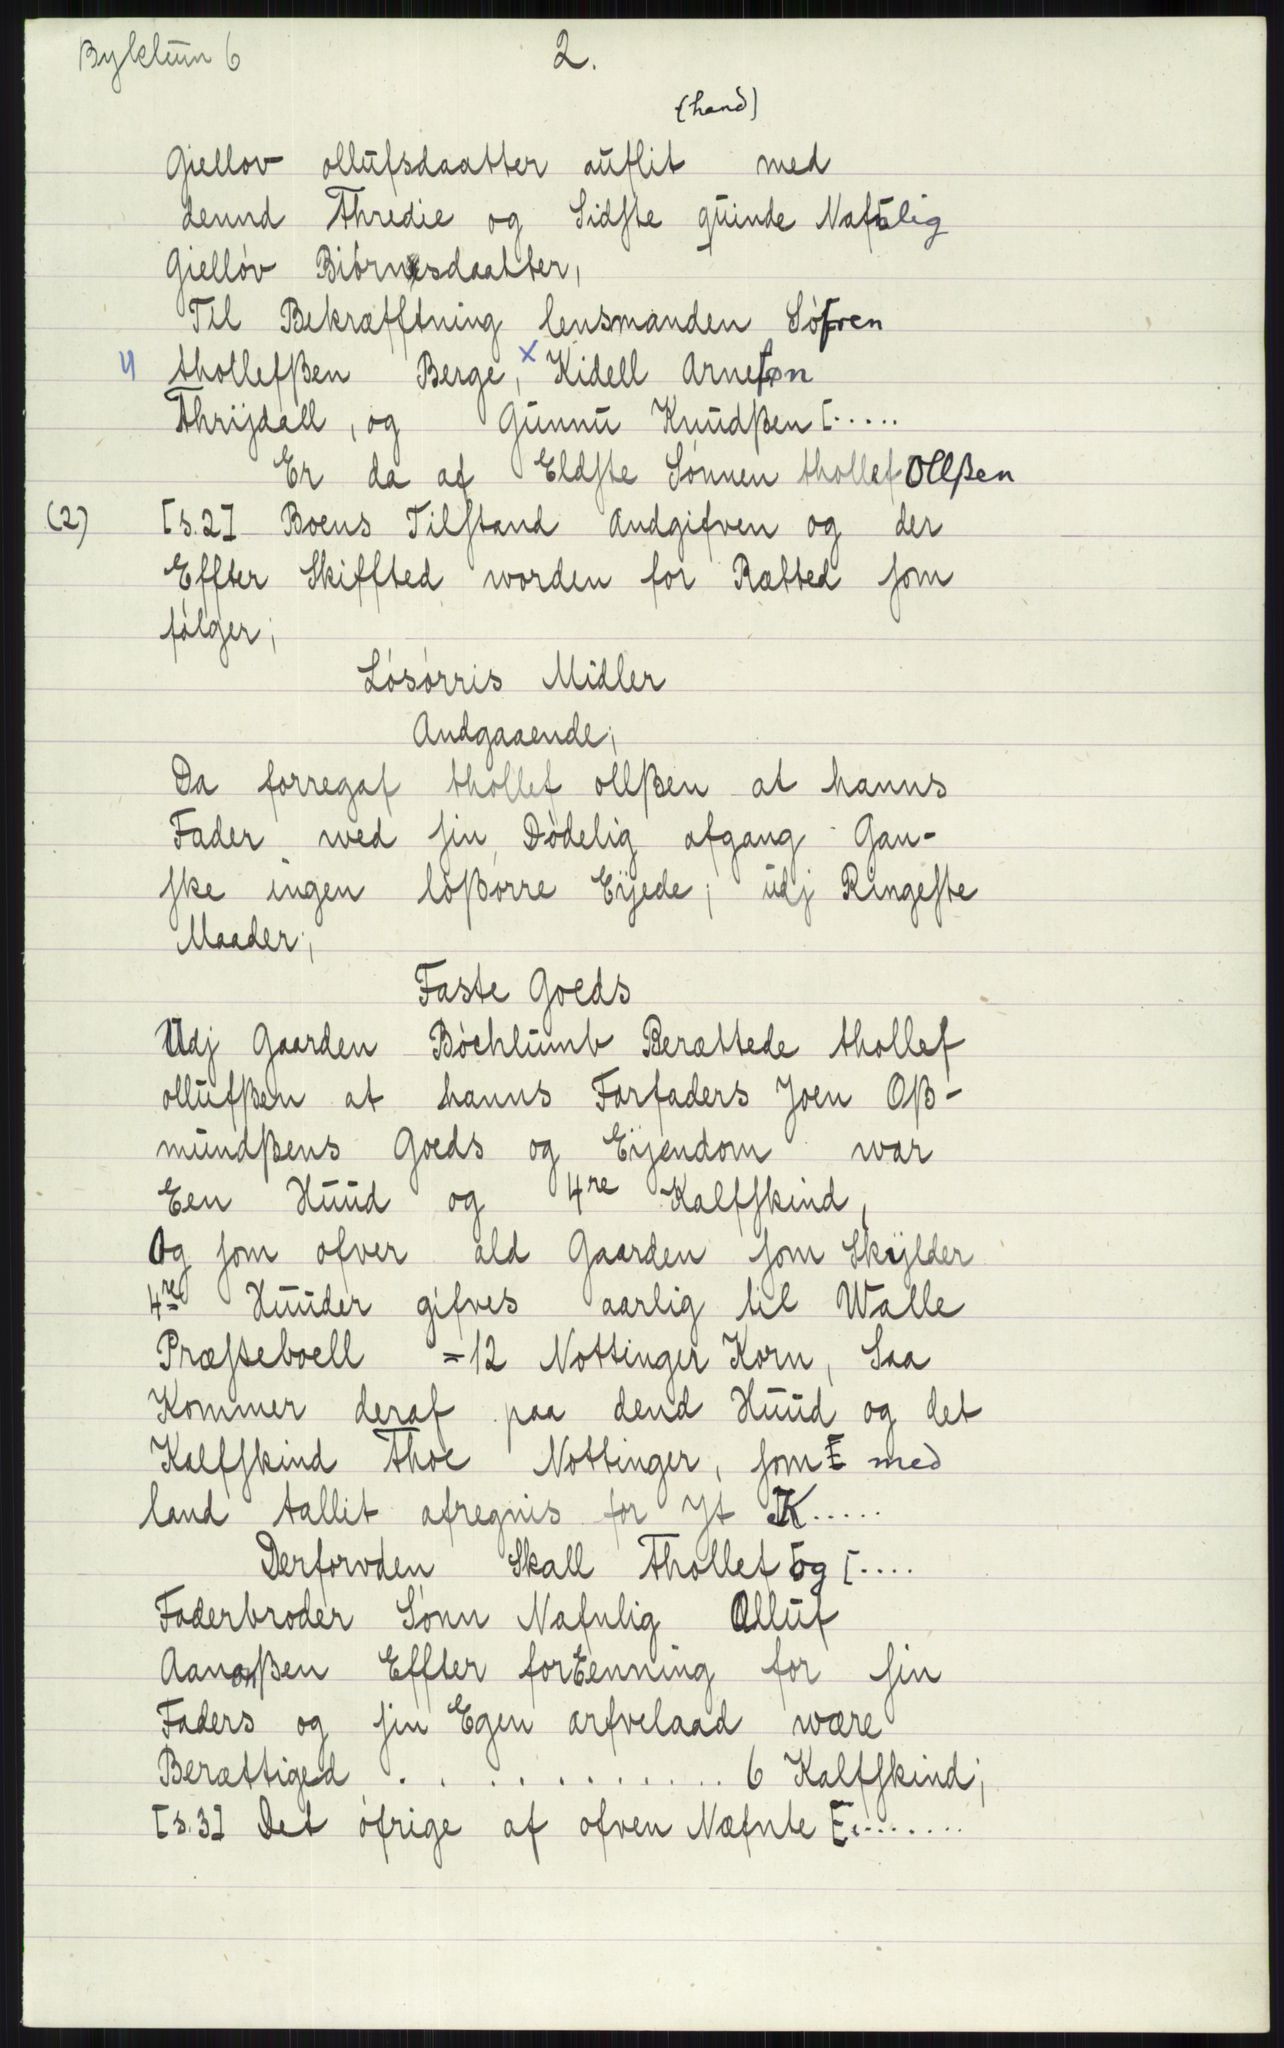 Byklum 6
2.
(hand)
Giellov ollufsdaatter auflit med
dennd Thredie og Sidste quinde Nafnlig
Giellóv Biórnsdaatter,
Til Bekræfftning lensmanden Sófren
4 thollefßen Berge, x Kidell Arneson
Thrijdall, og Gunnu Knudßen [.....
Er da af Eldste Sónnen thollef Ollßen
(2) [s.2] Boens Tilstand Andgifven og der
Effter Skiffted worden for Rætted som
fólger;
Lósórris Midler
Andgaaende;
Da forregaf thollef ollßen at hanns
Fader wed sin Dódelig afgang Gan-
ske ingen lóßórre Eijede; udj Ringeste
Maader;
Faste Goeds
Udj Gaarden Bóchlumb Berættede thollef
ollufßen at hanns Farfaders Joen Oß-
mundßens Goeds og Eijendom war
Een Huud og 4re Kalfskind,
Og som ofver ald Gaarden som Skijlder
4re Huuder gifves aarlig til Walle
Præsteboell = 12 Nottinger Korn, Saa
Kommer deraf paa dend Huud og det
Kalfskind Thoe Nottinger, som [ med
land tallit afregnis for Jt K.....
Derforvden Skall Thollef og [....
Faderbroder Sónn Nafnlig Olluf
Aanonßen Effter forEenning for sin
Faders og sin Egen arfvelaad wære
Berættiged . . . . . . . . . . . . 6 Kalfskind;
[s.3] Det ófrige af ofven Næfnte [........